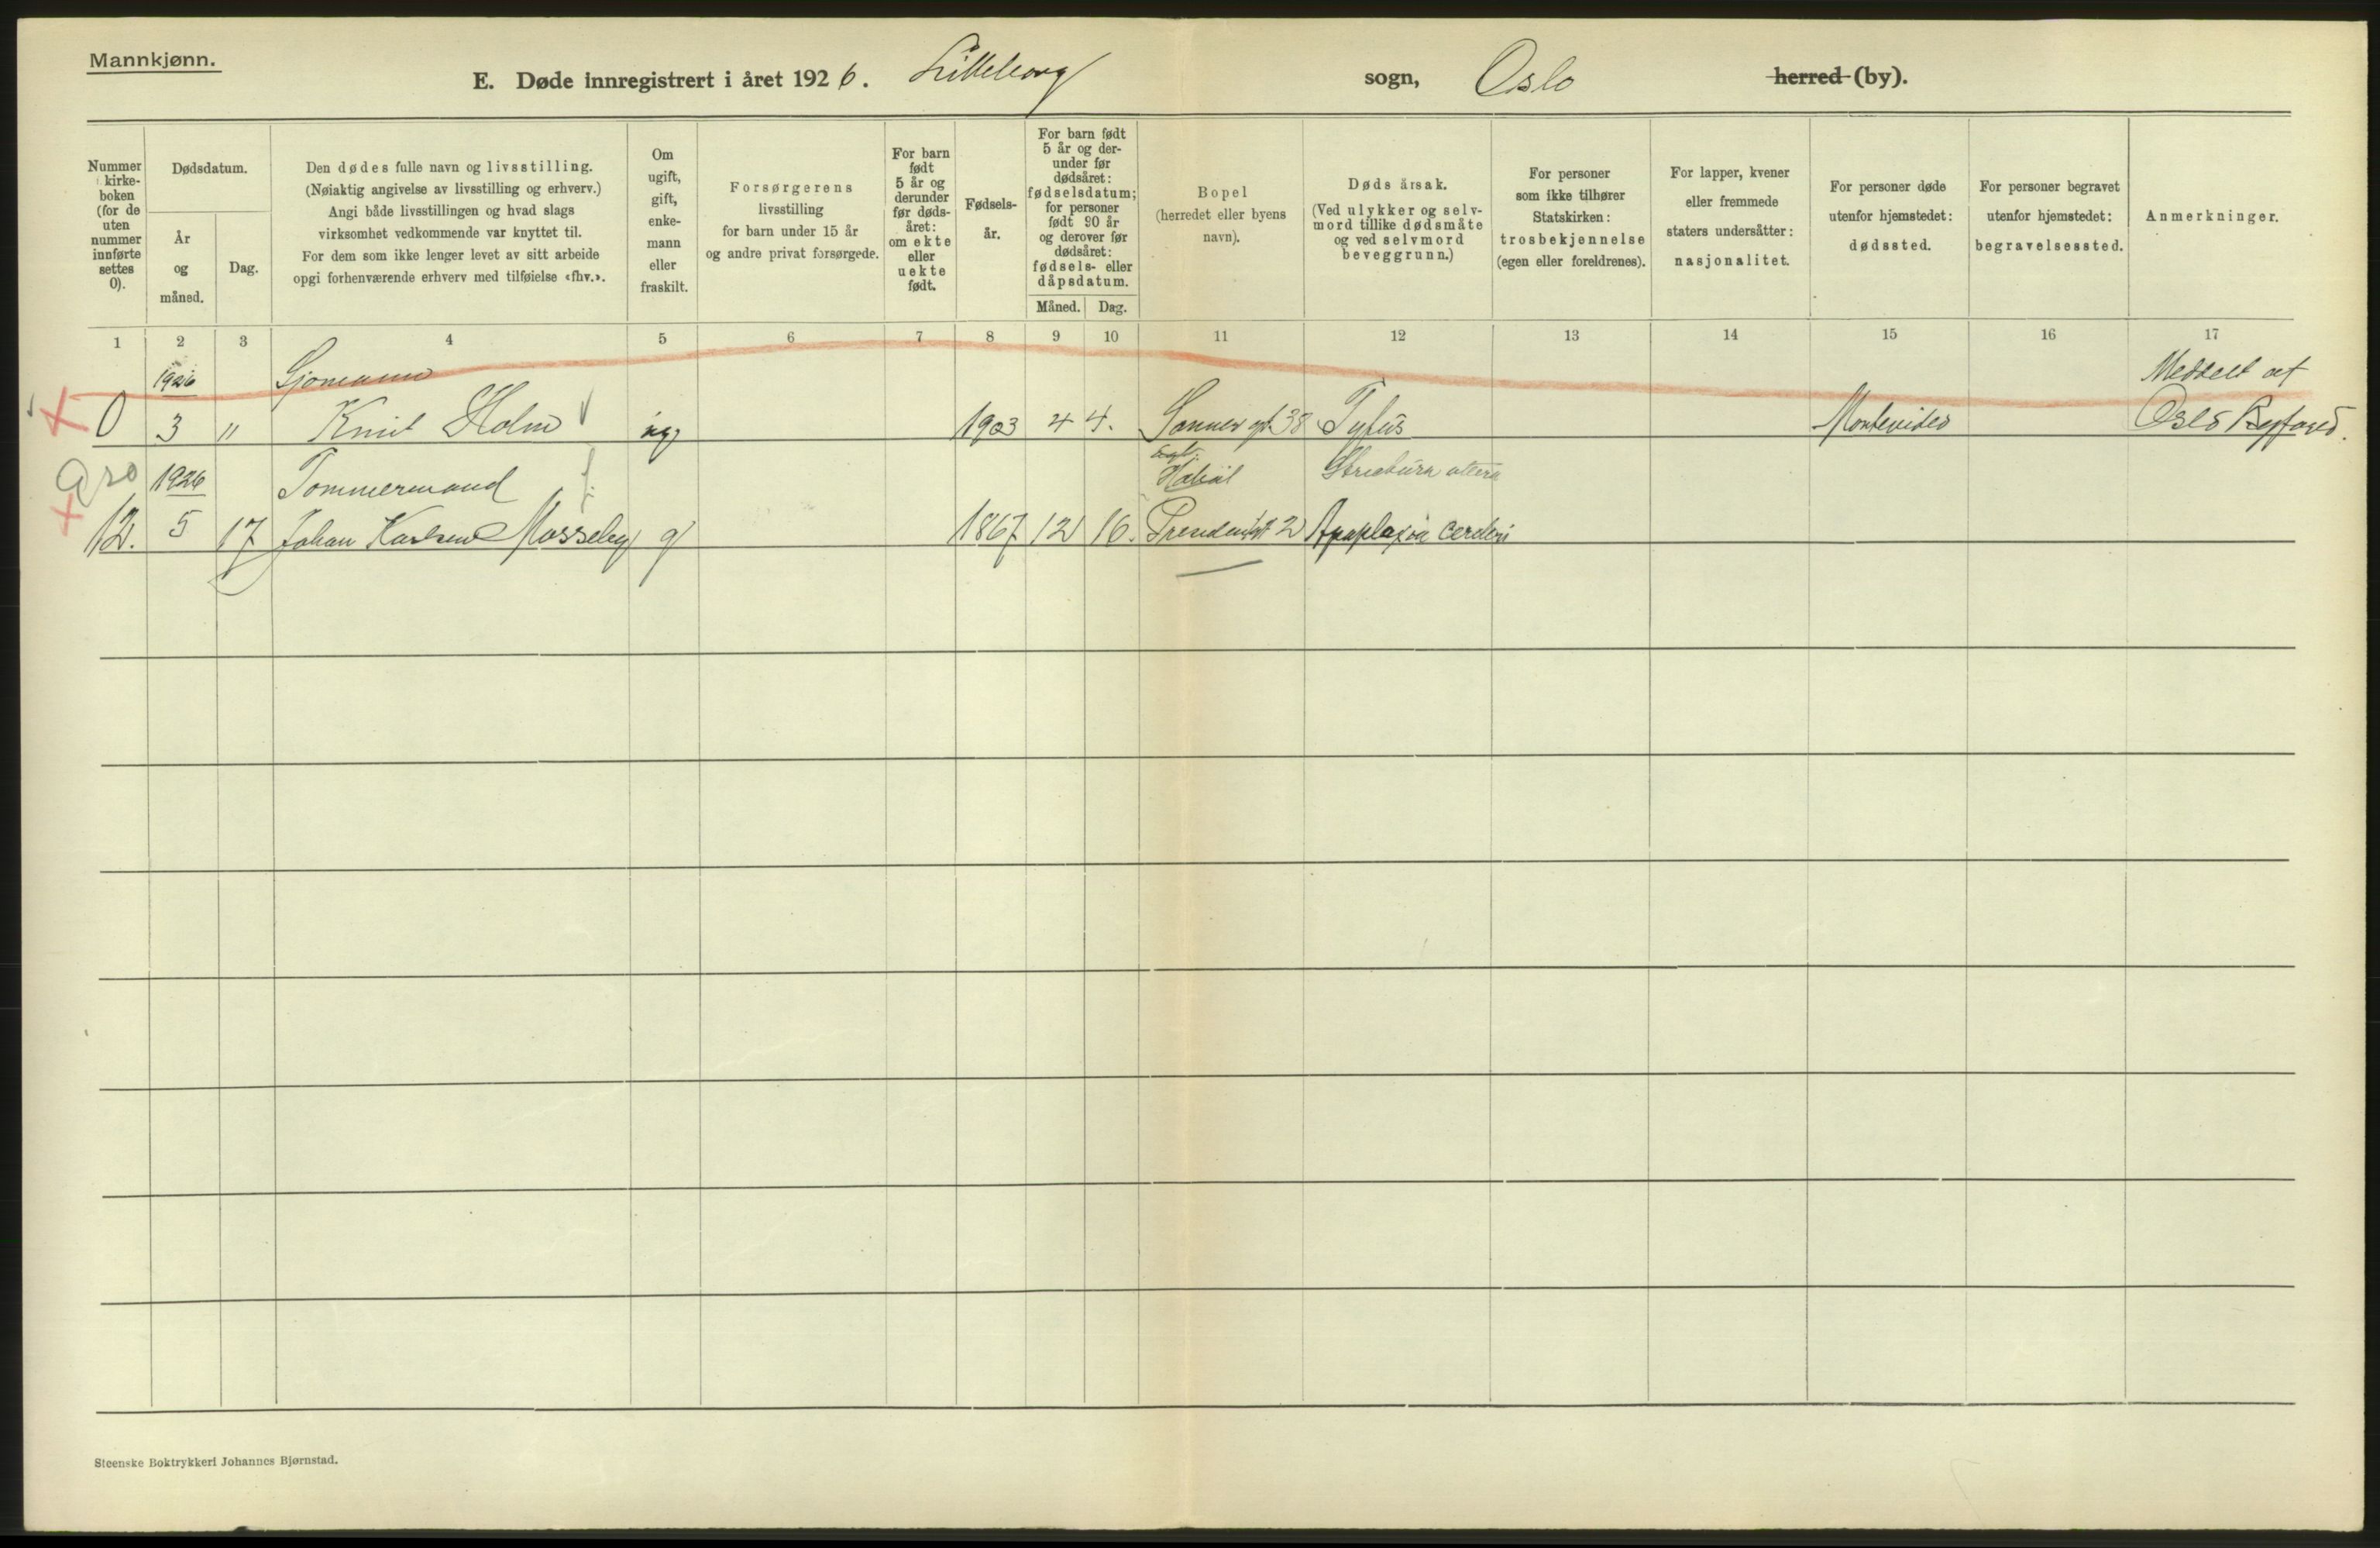 Mannkjønn.
E. Døde innregistrert i året 1926. Lilleborg sogn, Oslo herred (by).
Nummer i kirke-
boken
(for de
uten
nummer
innførte
settes
0).
Dødsdatum.
År
og
måned.
Dag.
Den dødes fulle navn og livsstilling.
(Nøiaktig angivelse av livsstilling og erhverv.)
Angi både livsstillingen og hvad slags
virksomhet vedkommende var knyttet til.
For dem som ikke lenger levet av sitt arbeide
opgi forhenværende erhverv med tilføielse «fhv.».
Om
ugift,
gift,
enke-
mann
eller
fraskilt.
Forsørgerens
livsstilling
for barn under 15 år
og andre privat forsørgede.
For barn
født
5 år og
derunder
før døds-
året:
om ekte
eller
uekte
født.
Fødsels-
år.
For barn født
5 år og der-
under før
dødsåret:
fødselsdatum;
for personer
født 90 år
og derover før
dødsåret:
fødsels- eller
dåpsdatum.
Måned. Dag.
Bopel
(herredet eller byens
navn).
Dødsårsak.
(Ved ulykker og selv-
mord tillike dødsmåte
og ved selvmord
beveggrunn.)
For personer
som ikke tilhører
Statskirken:
trosbekjennelse
(egen eller foreldrenes).
For lapper, kvener
eller fremmede
staters undersåtter:
nasjonalitet.
For personer døde
utenfor hjemstedet:
dødssted.
For personer begravet
utenfor hjemstedet:
begravelsessted.
Anmerkninger.
1 2 3 4 5 6 7 8 9 10 11 12 13 14 15 16 17
1926 Sjømann Meddelt af
0 3 " Knut Holm ug 1903 4 4. Sannergt. 38 Tyfus Montevideo Oslo Byfoged.
1926 Tømmermand
12. 5 17 Johan Karlsen Mosseby g 1867 12 16. 2 Apoplexia cerebri
Steenske Boktrykkeri Johannes Bjørnstad.